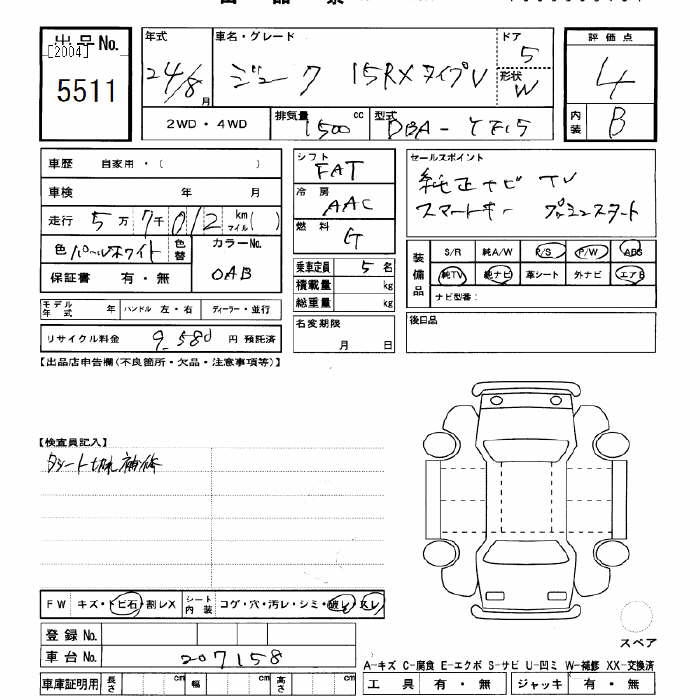 出品No.
[2004]
5511
年式
24/8月
車名・グレード
ジューク 15RX タイプV
ドア
5
形状
W
2WD・4WD
排気量 1500 cc
型式 DBA-YF15
評価点
4
内装
B
車歴 自家用・( )
車検 年 月
走行 5万 7千 012 km マイル( )
色 パールホワイト 色替
カラーNo.
QAB
保証書 有・無
モデル年式 年 ハンドル 左・右 ディーラー・並行
リサイクル料金 9,580 円 預託済
シフト
FAT
冷房
AAC
燃料
G
乗車定員 5 名
積載量 kg
総重量 kg
名変期限
月 日
セールスポイント
純正ナビ TV
スマートキー プッシュスタート
装備品
S/R 純A/W P/S P/W ABS
純TV 純ナビ 革シート 外ナビ エアB
ナビ型番:
後日品
【出品店申告欄(不良箇所・欠品・注意事項等)】
【検査員記入】
Dシート切れ補修
FW キズ・トビ石・割レX シート内装 コゲ・穴・汚レ・シミ・破レ・スレ
登録No.
車台No. 207158
車庫証明用 長さ cm 幅 cm 高さ cm
スペア
A-キズ C-腐食 E-エクボ S-サビ U-凹ミ W-補修 XX-交換済
工具 有・無 ジャッキ 有・無